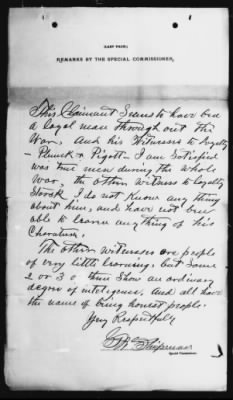 (LAST PAGE.)
REMARKS BY THE SPECIAL COMMISSIONER.
This Claimant Seems to have bed
a loyal man throughout the
War, and his Witnesses to Loyalty
Plunck & Pigott - I am Satisfied
was true men during the whole
War, the other witness to Loyalty
Stock I do not Know any thing
about him, and have not been
able to learn anything of his
Charature.
The other witnesses are people
of very little learning, but some
2 or 3 of them show an ordinary
degree of inteligence, and all have
the name of being honest people.
Very Respectfully
Special Commissioner.